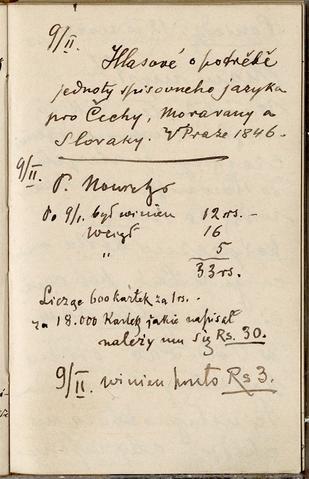 9/II.
Hlasové o potřebě
jednoty spisovneho jazyka
pro Čechy, Moravany a
Slovaky. V Praze 1846.
9/II.
P.
Do 9/I. był winien 12 rs. –
Wziął 16
" 5
33 rs.
Licząc 600 kartek za 1 rs.
za 18.000 Kartek jakie napisał
należy mu się Rs. 30.
9/II. winien konto Rs 3.